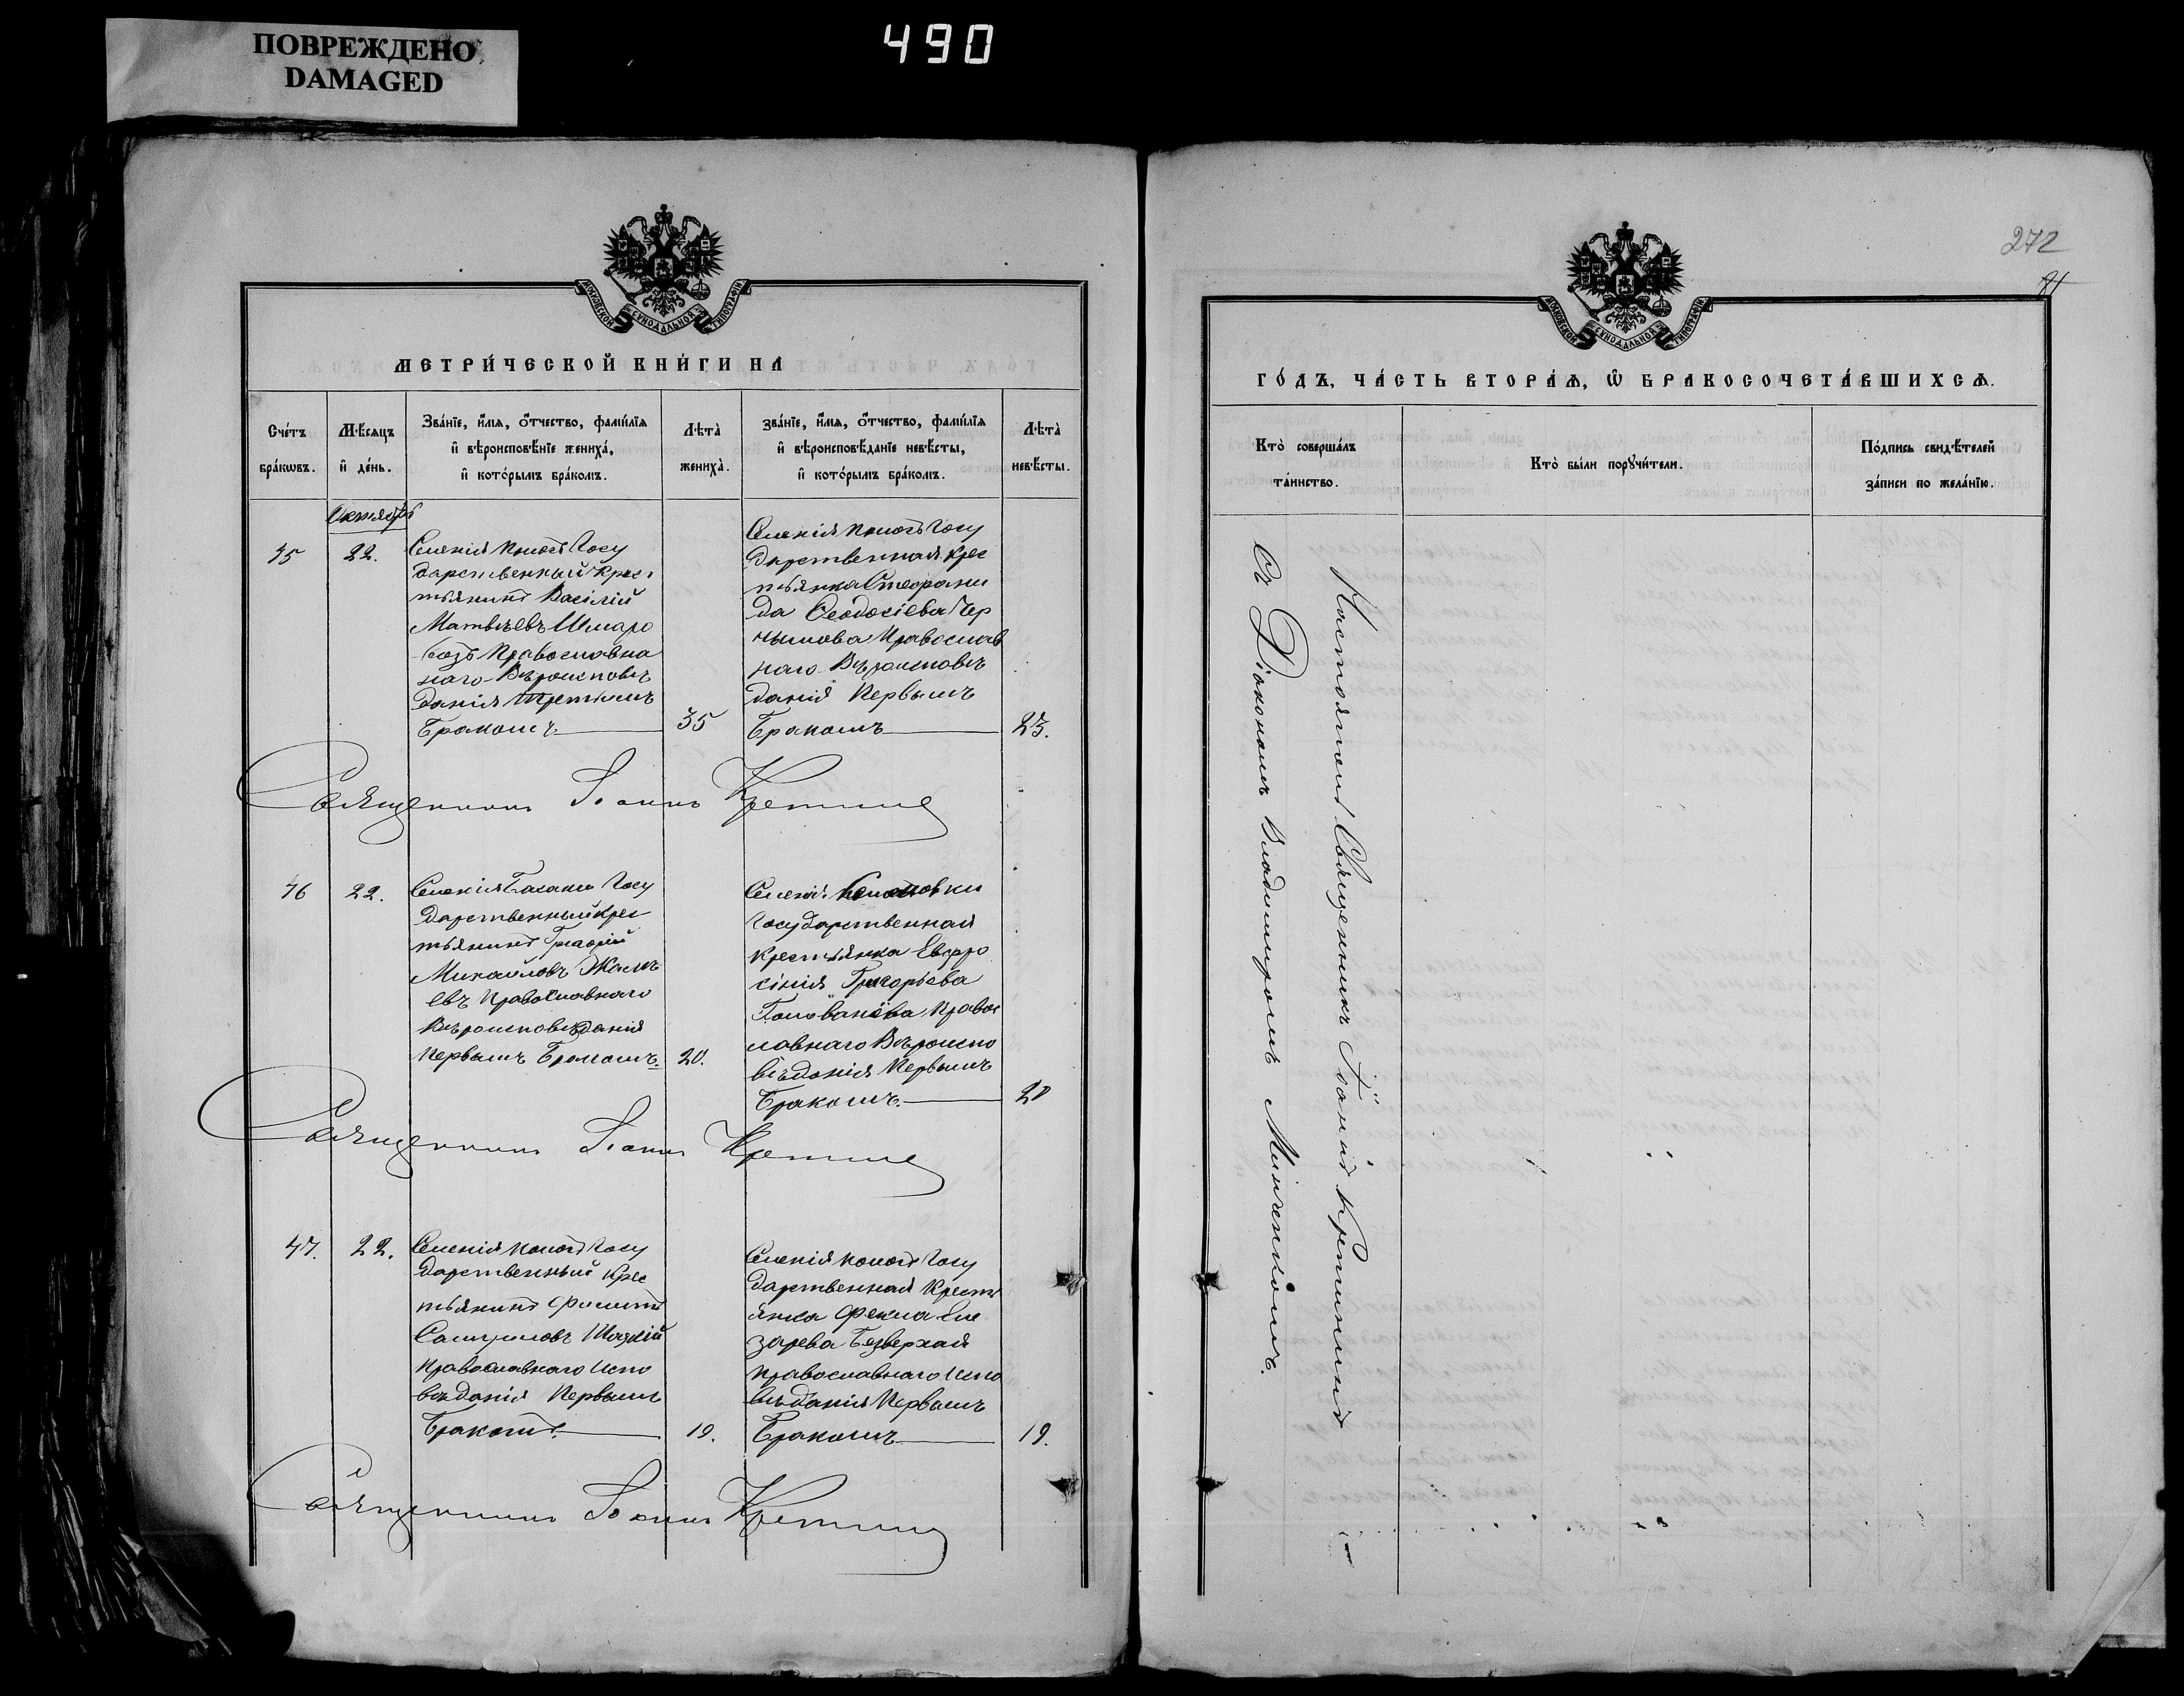 ПОВРЕЖДЕНО
DAMAGED
490
272
МОСКОВСКОЙ СѴНОДАЛЬНОЙ ТИПОГРАФІИ
МЕТРИ́ЧЕСКОЙ КНИ́ГИ НА
Сче́тъ бра́кѡвъ.
Мѣ́сяцъ и҆ де́нь.
Зва́нїе, и҆́мѧ, ѻ҆́тчество, фами́лїѧ
и҆ вѣроисповѣ́нїе жениха̀,
и҆ кото́рымъ бра́комъ.
Лѣта̀ жениха̀.
зва́нїе, и҆́мѧ, ѻ҆́тчество, фами́лїѧ
и҆ вѣроисповѣ́данїе невѣ́сты,
и҆ кото́рымъ бра́комъ.
Лѣта̀ невѣ́сты.
Октябрь
45
22.
Селенія Копогъ Госу
дарственный Крес
тьянинъ Васілій
Матвѣевъ
Православна
наго Вѣроисповѣ
данія Третьимъ
Бракомъ
35
Селенія Копогъ Госу
дарственная Крес
тьянка Стефани
да Феодосіева Чер
нышова Православ
наго Вѣроисповѣ
данія Первымъ
Бракомъ
23.
Священникъ Іоаннъ
46
22.
Селенія Госу
дарственный Крес
тьянинъ Григорій
Михайловъ
евъ Православнаго
Вѣроисповѣданія
Первымъ Бракомъ.
20.
Селенія
Государственная
Крестьянка Евфро
сінія Григорьева
Голованёва Правос
лавнаго Вѣроиспо
вѣданія Первымъ
Бракомъ.
20
Священникъ Іоаннъ
47.
22.
Селенія Копогъ Госу
дарственный Крес
тьянинъ Филиппъ
Самуиловъ
Православнаго Испо
вѣданія Первымъ
Бракомъ.
19.
Селенія Копогъ Госу
дарственная Кресть
янка Фекла Еле
зарева Безверхая
Православнаго Испо
вѣданія Первымъ
Бракомъ
19.
Священникъ Іоаннъ
МОСКОВСКОЙ СѴНОДАЛЬНОЙ ТИПОГРАФІИ
ГО́ДЪ, ЧА́СТЬ ВТОРА́Ѧ, Ѡ҆ БРАКОСОЧЕТА́ВШИХСѦ.
Кто̀ соверша́лъ
та́инство.
Кто̀ бы́ли порꙋчи́тели.
По́дпись свидѣ́телей
за́писи по жела́нїю.
Настоятель Священникъ Іоаннъ
съ Діакономъ Владимиромъ Минченкомъ.